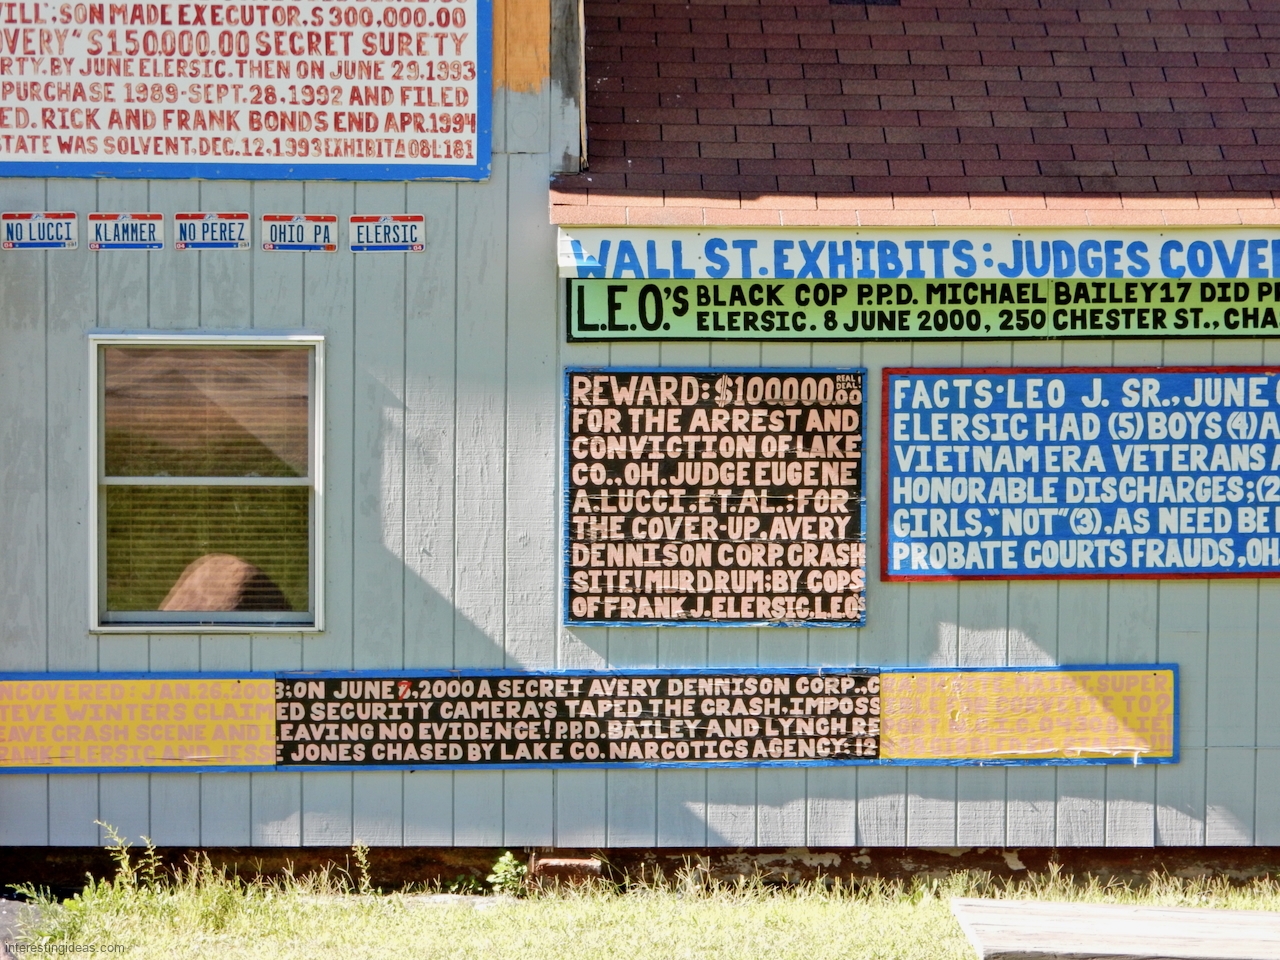 WILL":SON MADE EXECUTOR.$300,000.00
OVERY" $150,000.00 SECRET SURETY
RTY.BY JUNE ELERSIC.THEN ON JUNE 29.1993
PURCHASE 1989-SEPT.28.1992 AND FILED
ED. RICK AND FRANK BONDS END APR.1994
STATE WAS SOLVENT.DEC.12,1993 EXHIBIT A 081-181
NO LUCCI
KLAMMER
NO PEREZ
OHIO PA
ELERSIC
WALL ST. EXHIBITS: JUDGES COVE
L.E.O.'S BLACK COP P.P.D. MICHAEL BAILEY 17 DID
ELERSIC. 8 JUNE 2000, 250 CHESTER ST., CHA
REWARD: $100000.00 REAL DEAL!
FOR THE ARREST AND
CONVICTION OF LAKE
CO., OH. JUDGE EUGENE
A. LUCCI. ET. AL.; FOR
THE COVER-UP. AVERY
DENNISON CORP. CRASH
SITE! MURDRUM; BY COPS
OF FRANK J. ELERSIC, L.E.O.'S
FACTS·LEO J. SR., JUNE
ELERSIC HAD (5) BOYS (4) A
VIETNAM ERA VETERANS
HONORABLE DISCHARGES; (2
GIRLS, "NOT" (3), AS NEED BE
PROBATE COURTS FRAUDS, OH
NCOVERED: JAN. 26, 200 3: ON JUNE 7, 2000 A SECRET AVERY DENNISON CORP., SUPER
TEVE WINTERS CLAIM ED SECURITY CAMERA'S TAPED THE CRASH. IMPOSS
EAVE CRASH SCENE AND LEAVING NO EVIDENCE! P.P.D. BAILEY AND LYNCH RE
RANK ELERSIC AND JESSE JONES CHASED BY LAKE CO. NARCOTICS AGENCY: 12
interestingideas.com